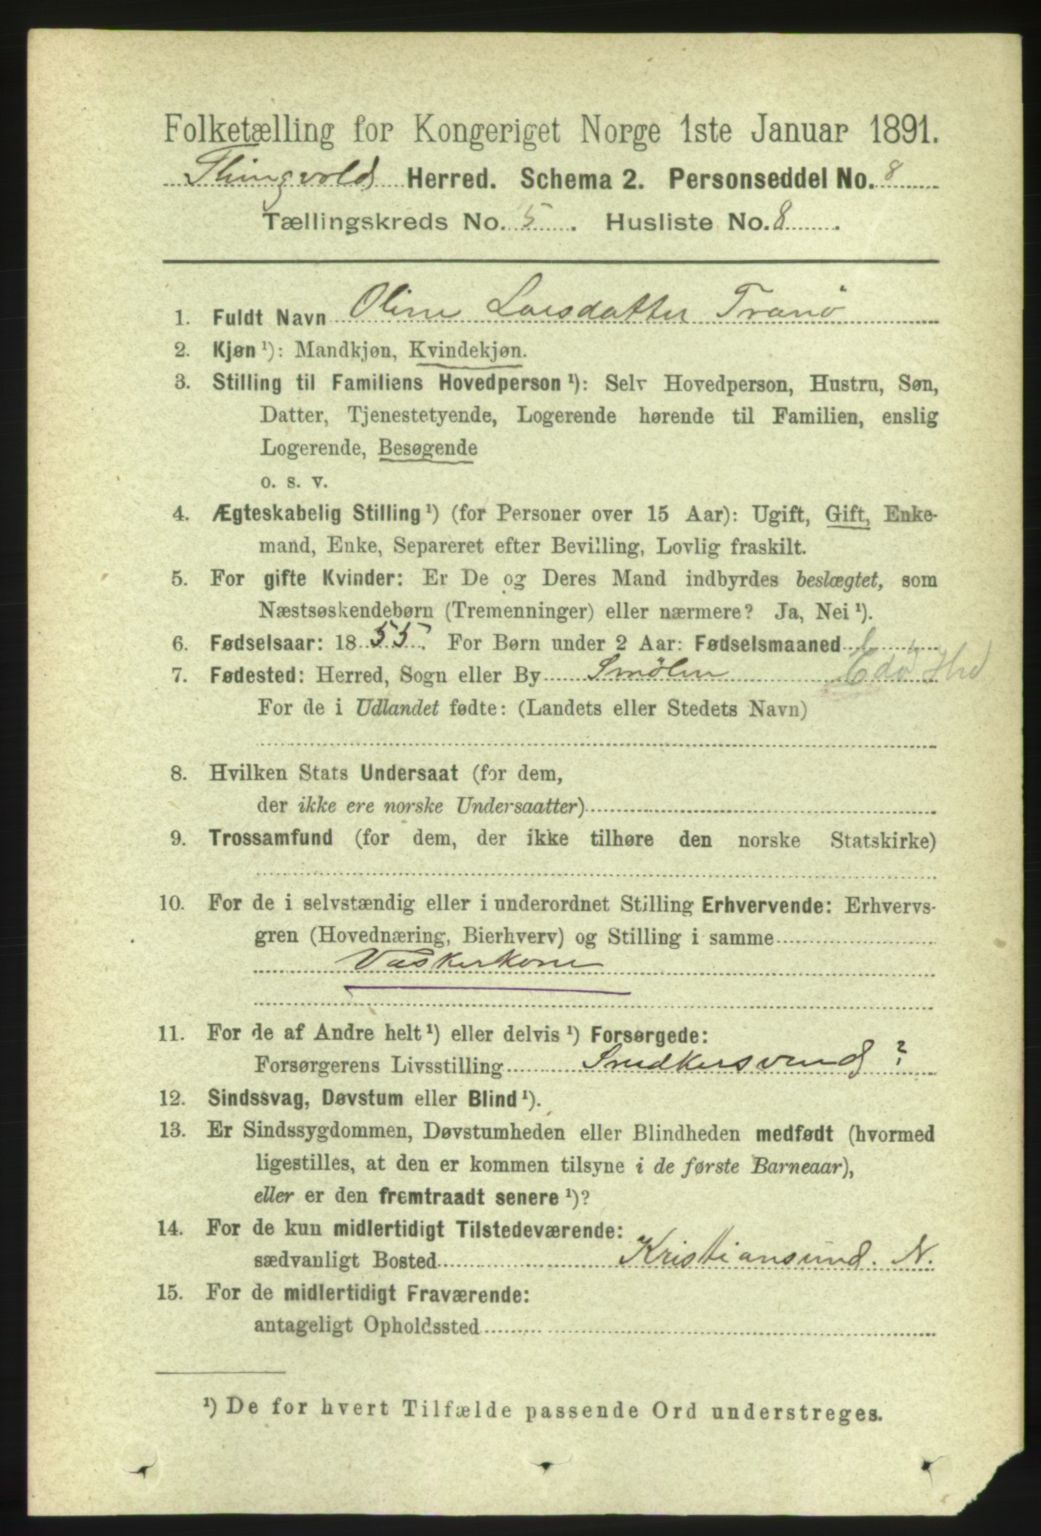 Folketælling for Kongeriget Norge 1ste Januar 1891.
Thingvold Herred. Schema 2. Personseddel No. 8
Tællingskreds No. 5. Husliste No. 8.
1. Fuldt Navn Oline Larsdatter Tranø
2. Kjøn ¹): Mandkjøn, Kvindekjøn.
3. Stilling til Familiens Hovedperson ¹): Selv Hovedperson, Hustru, Søn,
Datter, Tjenestetyende, Logerende hørende til Familien, enslig
Logerende, Besøgende
o. s. v.
4. Ægteskabelig Stilling ¹) (for Personer over 15 Aar): Ugift, Gift, Enke-
mand, Enke, Separeret efter Bevilling, Lovlig fraskilt.
5. For gifte Kvinder: Er De og Deres Mand indbyrdes beslægtet, som
Næstsøskendebørn (Tremenninger) eller nærmere? Ja, Nei ¹).
6. Fødselsaar: 1855. For Børn under 2 Aar: Fødselsmaaned
7. Fødested: Herred, Sogn eller By Smølen Edø Hrd
For de i Udlandet fødte: (Landets eller Stedets Navn)
8. Hvilken Stats Undersaat (for dem,
der ikke ere norske Undersaatter)
9. Trossamfund (for dem, der ikke tilhøre den norske Statskirke)
10. For de i selvstændig eller i underordnet Stilling Erhvervende: Erhvervs-
gren (Hovednæring, Bierhverv) og Stilling i samme
Vaskerkone
11. For de af Andre helt ¹) eller delvis ¹) Forsørgede:
Forsørgerens Livsstilling ?
12. Sindssvag, Døvstum eller Blind ¹).
13. Er Sindssygdommen, Døvstumheden eller Blindheden medfødt (hvormed
ligestilles, at den er kommen tilsyne i de første Barneaar),
eller er den fremtraadt senere ¹)?
14. For de kun midlertidigt Tilstedeværende:
sædvanligt Bosted Kristiansund. N.
15. For de midlertidigt Fraværende:
antageligt Opholdssted
¹) De for hvert Tilfælde passende Ord understreges.